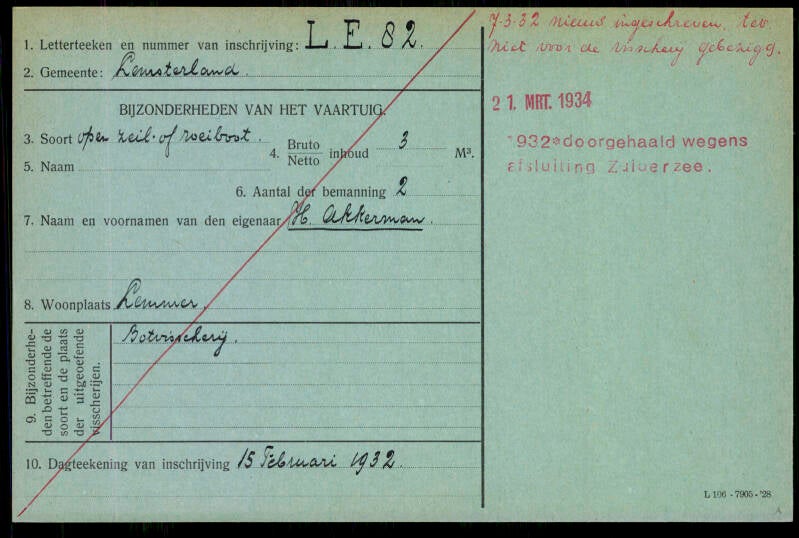 1. Letterteeken en nummer van inschrijving: L.E. 82.
2. Gemeente: Lemsterland.
BIJZONDERHEDEN VAN HET VAARTUIG.
3. Soort open zeil- of roeiboot. 4. Bruto Netto inhoud 3 M³.
5. Naam
6. Aantal der bemanning 2
7. Naam en voornamen van den eigenaar H. Akkerman.
8. Woonplaats Lemmer.
9. Bijzonderhe-
den betreffende de
soort en de plaats
der uitgeoefende
visscherijen.
Botvisscherij.
10. Dagteekening van inschrijving 15 Februari 1932.
7-3-32 nieuw ingeschreven,
niet voor de visscherij gebezigd.
21. MRT. 1934
1932 doorgehaald wegens
afsluiting Zuiderzee.
L 106 - 7905 - '28